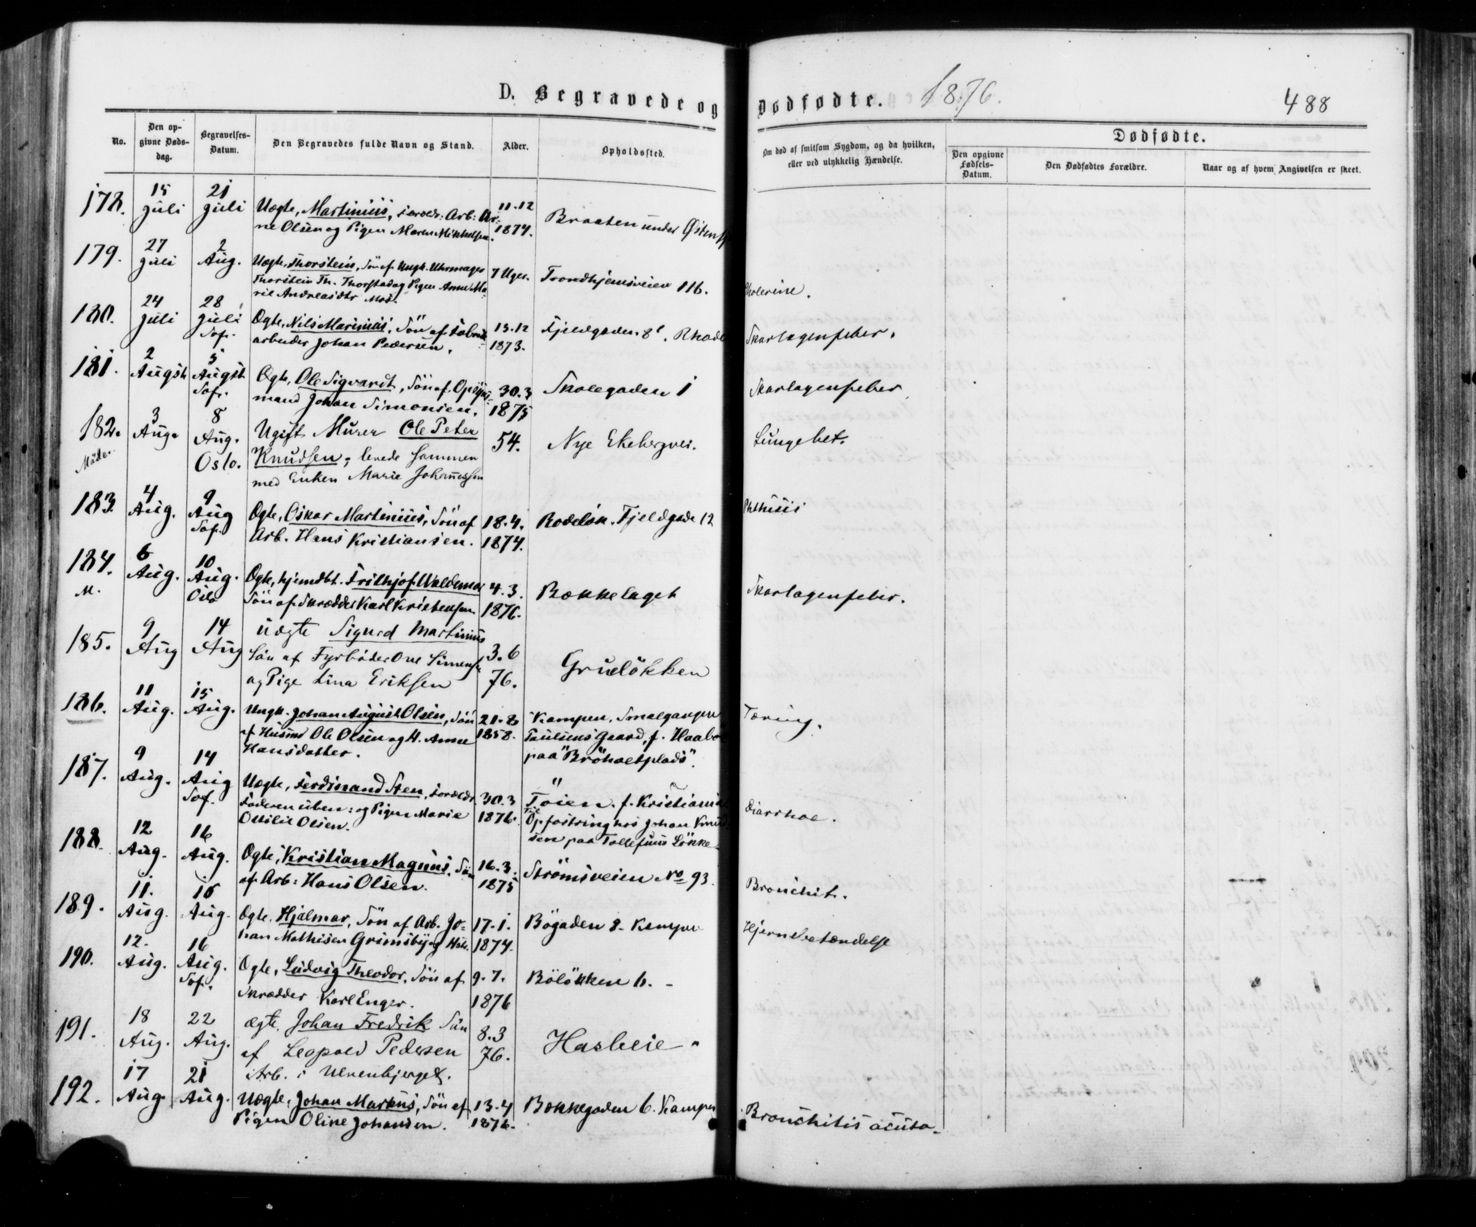 D. Begravede og Dødfødte. 1876. 488
No.
Den opgivne Dødsdag.
Begravelses-Datum.
Den Begravedes fulde Navn og Stand.
Alder.
Opholdssted.
Om død af smitsom Sygdom, og da hvilken, eller ved ulykkelig Hændelse.
Dødfødte.
Den opgivne Fødsels-Datum.
Den Dødfødtes Forældre.
Naar og af hvem Angivelsen er skeet.
178. 15 Juli 21 Juli Uægte, Martinius, Foræld: Arb. Ar-
ne Olsen og Pigen Maren Mikkelsen. 11.12 1874. Braaten under
179. 27 Juli 2 Aug. Uægte, Thorstein, Søn af Ungk. Uhrmager
Thorstein Th. Thorstadog Pigen Anne Ma-
rie Andreasdtr 7 Uger. Trondhjemsveien 116. Cholerine.
180. 24 Juli 28 Juli Sof. Ægte, Nils Marinius, Søn af Fabrik
arbeider Johan Pedersen. 13.12 1873. Fjeldgaden 8 Skarlagensfeber.
181. 2 August 5 August Sof. Ægte, Ole Sigvardt, Søn af Opsyns-
mand Johan Simonsen. 30.3 1875 Skolegaden 1 Skarlagensfeber
182. 3 Aug. 8 Aug. Oslo. Ugift Murer Ole Peter
Knudsen, levede sammen
med Enken Marie Johannessen 54. Nye Ekebergvei. Lungebet.
183. 4 Aug. 9 Aug Sof. Ægte, Oskar Martinius, Søn af
Arb. Hans Kristiansen. 18.4. 1874. Rodeløk. Fjeldgade 12 Phthisis
184. M. 6 Aug. 10 Aug. Oslo Ægte, hjemdbt. Frithjof Waldemar
Søn af Skrædder Karl Kristensen. 4.3. 1876. Bækkelaget Skarlagensfeber.
185. 9 Aug 14 Aug Uægte Sigurd Martinius
Søn af Fyrbøder Ove Simens.
og Pige Lina Eriksen 3.6 76. Grueløkken
186. 11 Aug. 15 Aug. Ungk. Johan August Olsen, Søn
af Husmd Ole Olsen og H. Anne
Hansdatter. 21.8 1858. Kampen, Smalgangen
Paulsens Gaard, f. Haabøl
paa "Brøholtplads". Tæring.
187. 9 Aug. 14 Aug Sof. Uægte, Ferdinand Sten, Foræld:
Faderen uben: og Pigen Marie
Ottilie Olsen. 30.3 1876. Tøien. f. Kristiania
Opfostring hos Johan Knud
sen paa Tollefsens Løkke Diarrhoe.
188. 12 Aug. 16 Aug. Ægte, Kristian Magnus, Søn
af Arb: Hans Olsen. 16.3. 1875 Strømsveien No 93. Bronchit.
189. 11. Aug. 16 Aug. Ægte, Hjalmar, Søn af Arb. Jo-
han Mathisen Grimsby og Hus. 17.1. 1874. Bøgaden 8. Kampen Hjernebetændelse
190. 12. Aug. 16 Aug. Sof. Ægte, Ludvig Theodor, Søn af
Skrædder Karl Enger. 9.7. 1876 Bøløkken 6.
191. 18 Aug. 22 Aug. ægte, Johan Fredrik Søn
af Leopold Pedersen
Arb. i Ulvenbjerget. 8.3 76. Hasleie
192. 17 Aug. 21 Aug. Uægte, Johan Markus, Søn af
Pigen Oline Johansen. 13.4 1876. Bækkegaden 6. Kampen Bronchitis acuta.